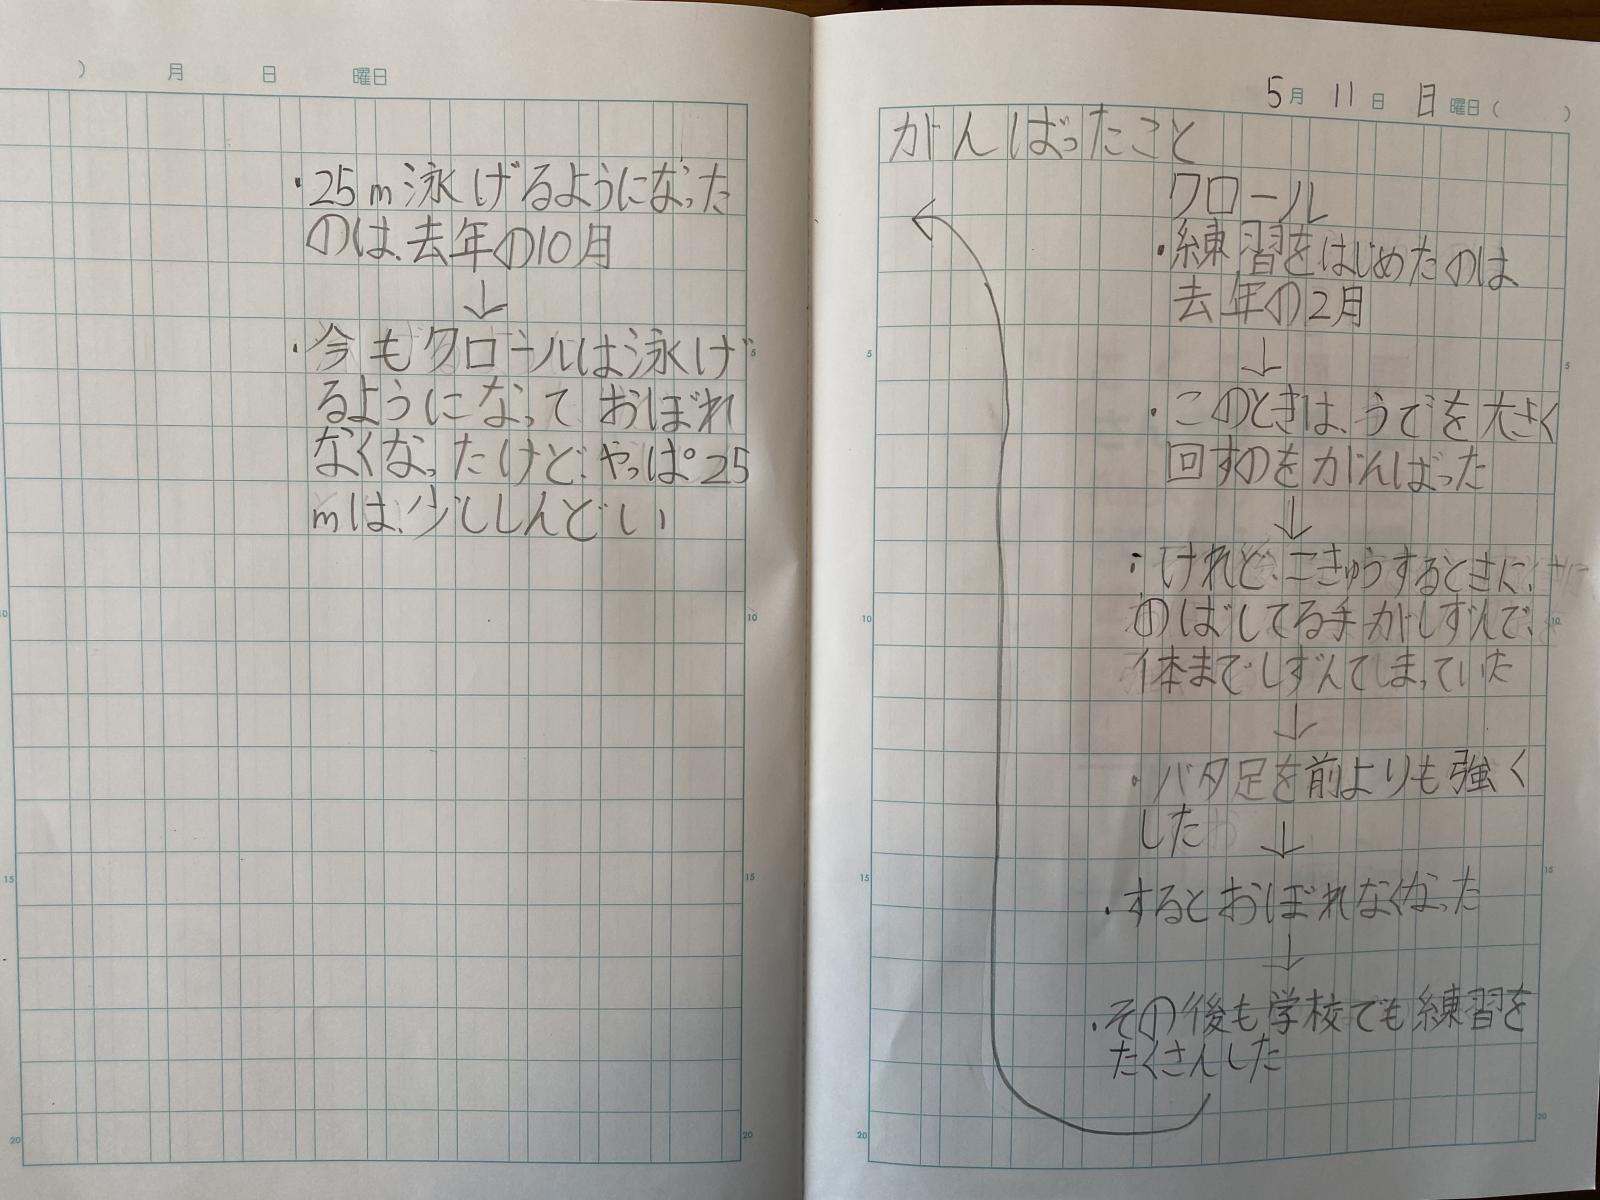 5月 11日 日曜日( )
がんばったこと
クロール
・練習をはじめたのは
去年の2月
↓
・このときは、うでを大きく
回すのをがんばった
↓
・けれど、こきゅうするときに、
のばしてる手がしずんで、
体までしずんでしまっていた
↓
・バタ足を前よりも強く
した
↓
・するとおぼれなくなった
↓
・その後も学校でも練習を
たくさんした
5
10
15
20
5
10
15
20
) 月 日 曜日
・25m泳げるようになった
のは、去年の10月
↓
・今もクロールは泳げ
るようになって おぼれ
なくなったけど、やっぱ25
mは、少ししんどい
5
10
15
20
10
15
20